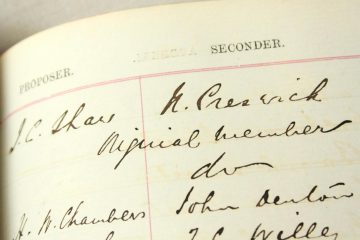 PROPOSER. SECONDER.
J. C. Shaw H. Creswick
Original Member
do
H. W. Chambers John Denton
J. C. Willey